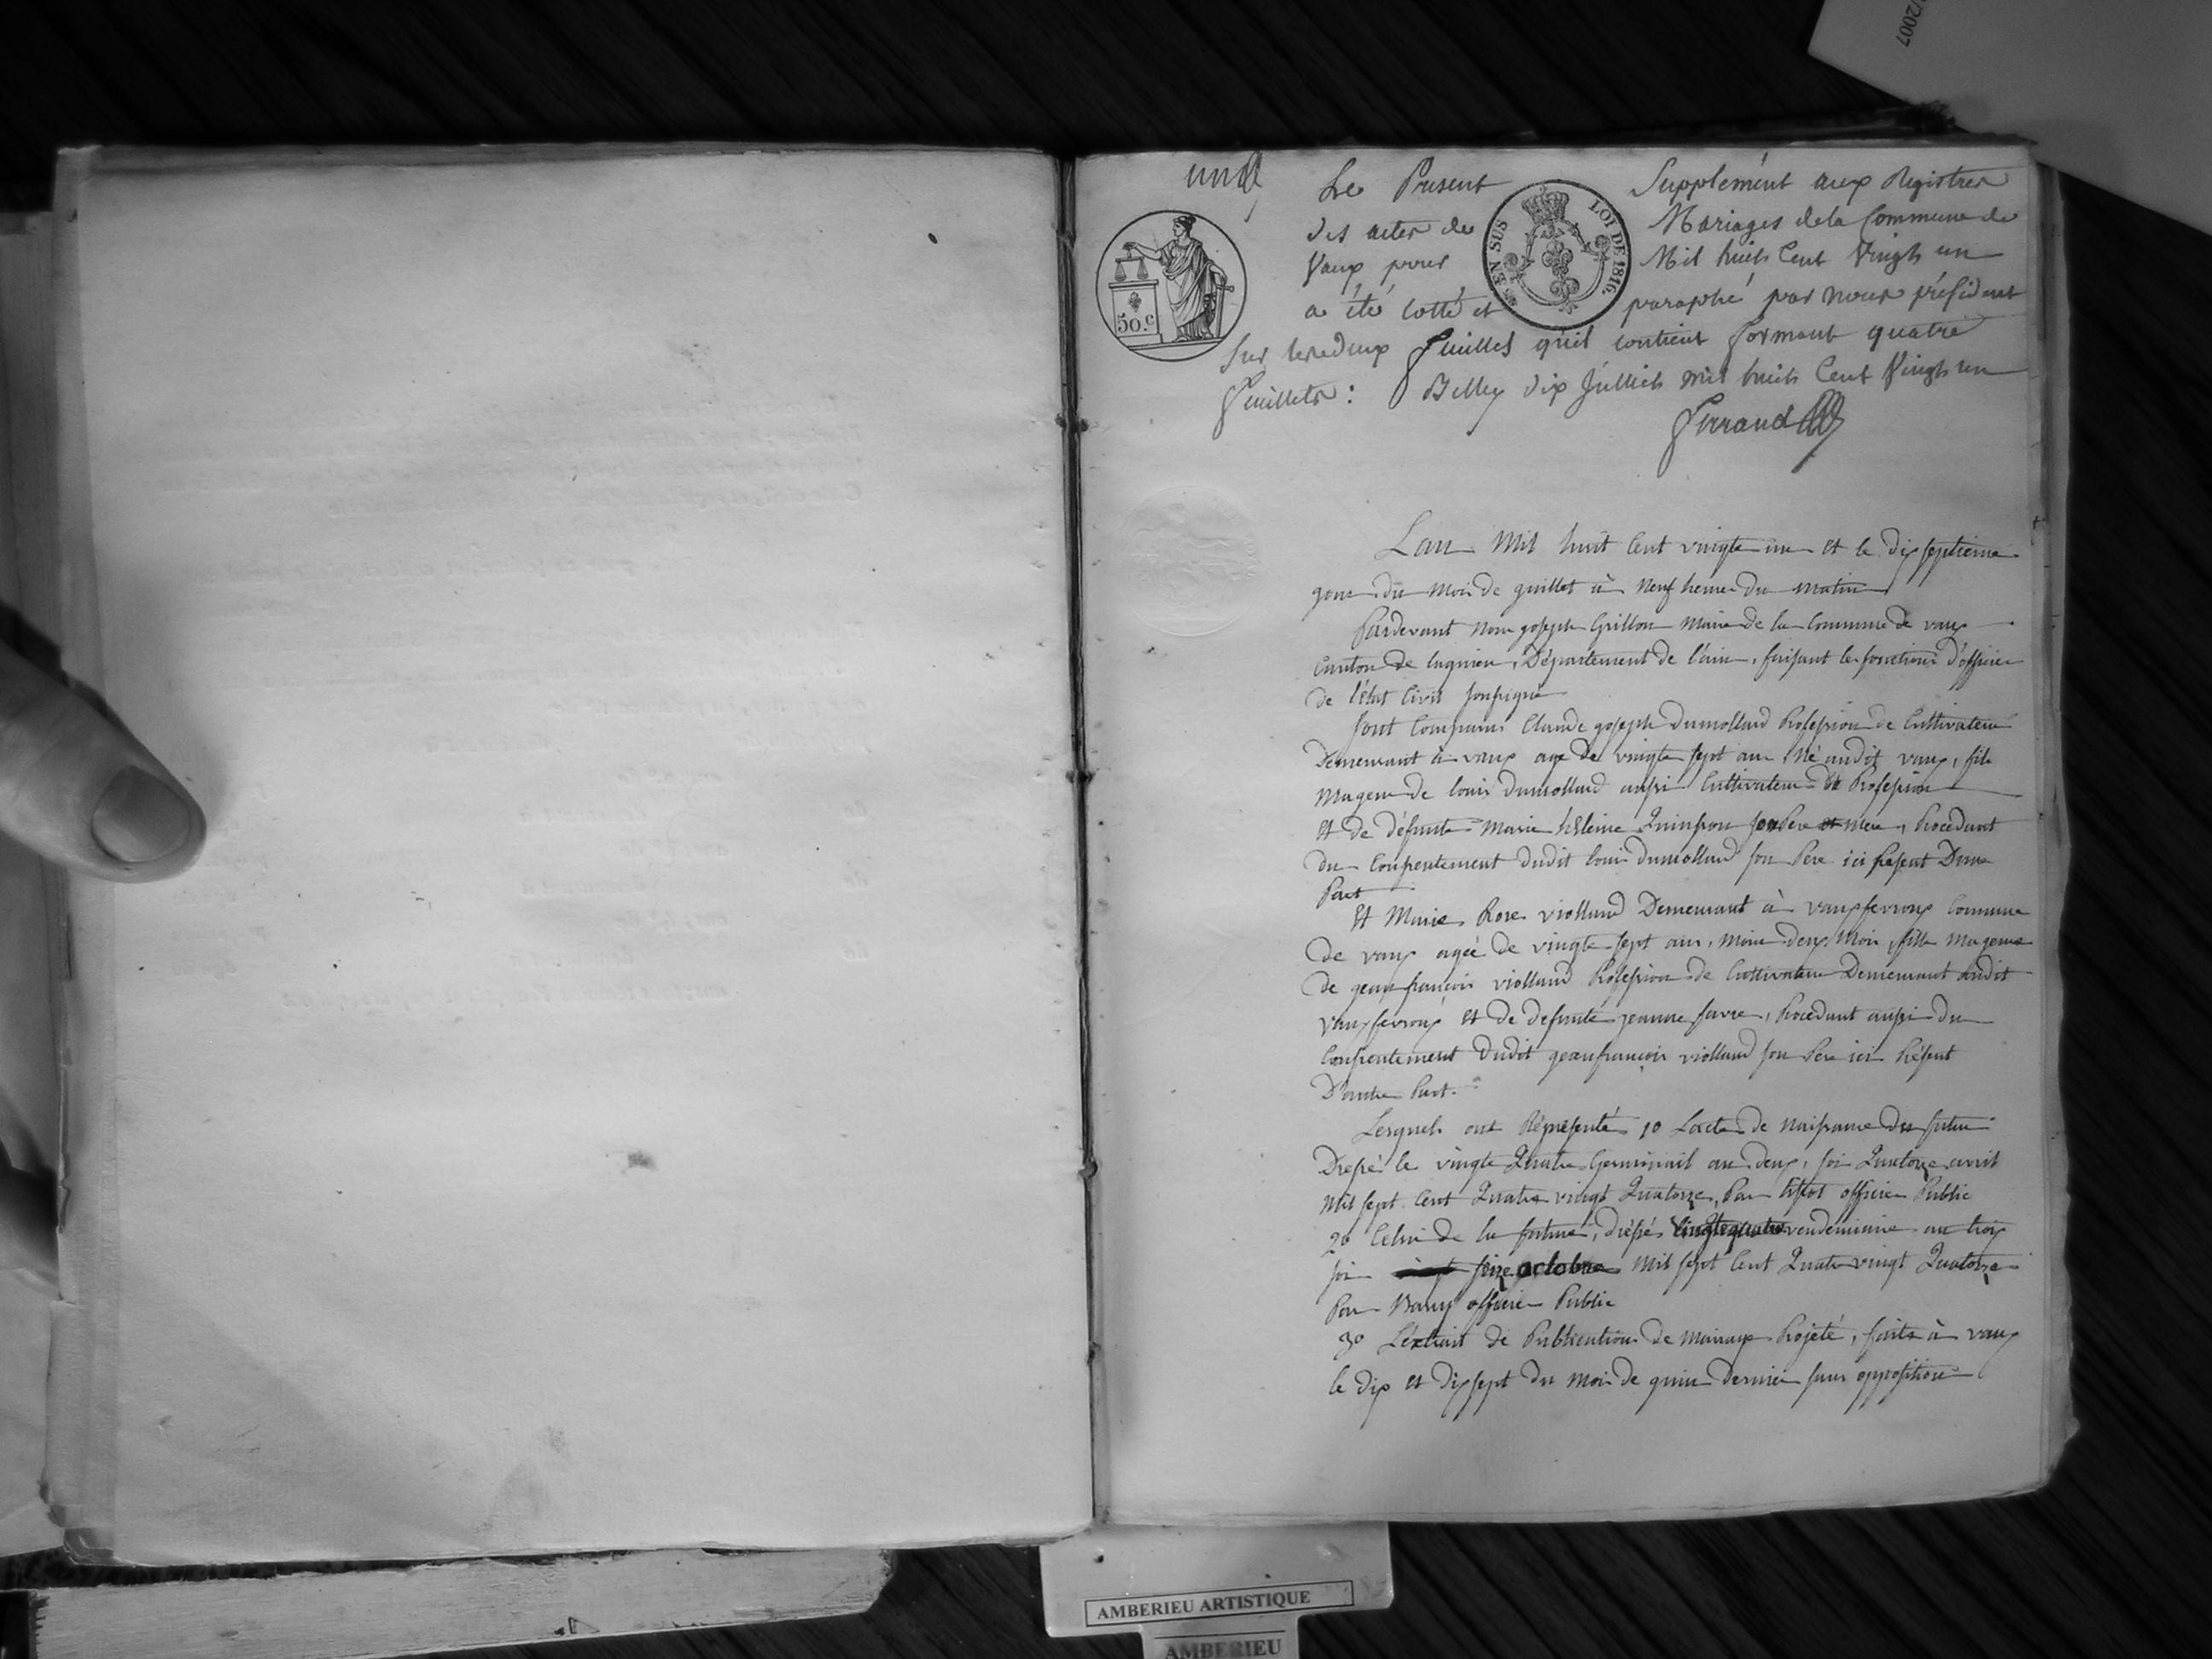 /2007
un
Le Présent Supplément aux Registres
des actes de Mariages de la Commune de
Vaux pour Mil huit Cent Vingt un
a été cotté et paraphé par nous président
sur les deux feuilles qu'il contient formant quatre
feuillets : Belley dix Juillet mil huit Cent Vingt un
Ferraud
50.c
EN SUS
LOI DE 1816.
Lan Mil huit Cent vingte un et le dix septieme
gour du mois de guillet à neuf heures du matin
Pardevant nous goseph Grillon Maire de la Commune de vaux
Canton de lagnieu, Département de l'ain, faisant les fonctions d'officier
de l'état Civil soussigné
sont Comparus Claude goseph Dumollard Profession de Cultivateur
Demeurant à vaux agé de vingte sept ans Né audit vaux, fils
Mageur de louis Dumollard aussi Cultivateur de Profession
et de défunte Marie héleine Quinson ses Pere et mere, Procédant
du Consentement dudit louis dumollard son Pere ici Présent Dune
Part
Et Marie Rose violland Demeurant à vauxfevroux Commune
de vaux agée de vingte sept ans, moins deux mois, fille mageure
de gean françois violland Profession de Cultivateur Demeurant audit
vauxfevroux et de defunte jeanne favre, Procédant aussi du
Consentement dudit geanfrançois violland son Pere ici Présent
D'autre Part.
Lesquels ont Répresenté 1o Lacte de naissance du futur
Dressé le vingte Quatre Germinail an deux, soi Quatorze avril
Mil sept Cent Quatre vingt Quatorze, Par officier Public
2o Celui de la future, dressé vingtequatre vendemiaire an trois
soi seize octobre Mil sept Cent Quatre vingt Quatorze
Par officier Public
3o L'extrait de Publication de mariage Projeté, faite à vaux
le dix et dix sept du mois de guin dernier sans opposition
AMBERIEU ARTISTIQUE
AMBERIEU